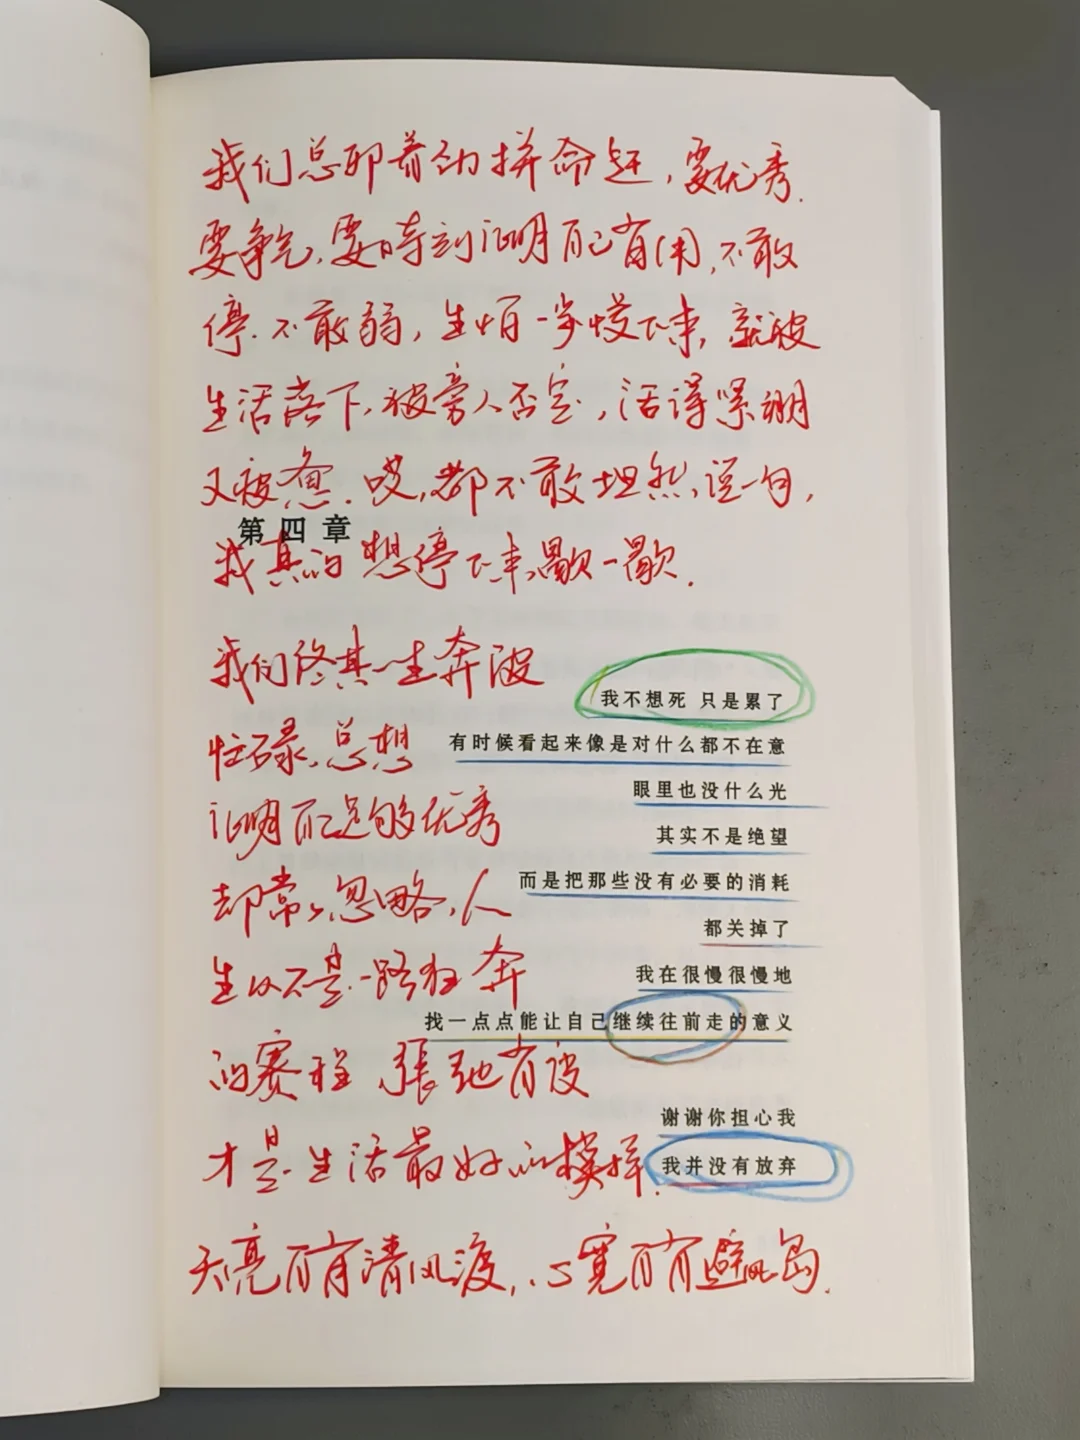 我们总卯着劲拼命赶，要优秀.
要争气，要时刻证明自己有用，不敢
停.不敢弱，生怕一步慢下来，就被
生活落下，被旁人否定，活得紧绷
又疲惫.哎，都不敢坦然说一句，
第四章
我真的想停下来，歇一歇.
我们终其一生奔波
忙碌，总想
证明自己足够优秀
却常常忽略，人
生从不是一路狂奔
的赛程 张弛有度
才是生活最好的模样.
天亮自有清风渡，心宽自有避风岛.
我不想死 只是累了
有时候看起来像是对什么都不在意
眼里也没什么光
其实不是绝望
而是把那些没有必要的消耗
都关掉了
我在很慢很慢地
找一点点能让自己继续往前走的意义
谢谢你担心我
我并没有放弃